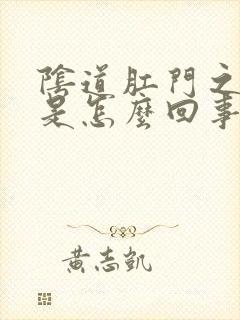 陰道肛門之
是怎麼回事
黃志凱